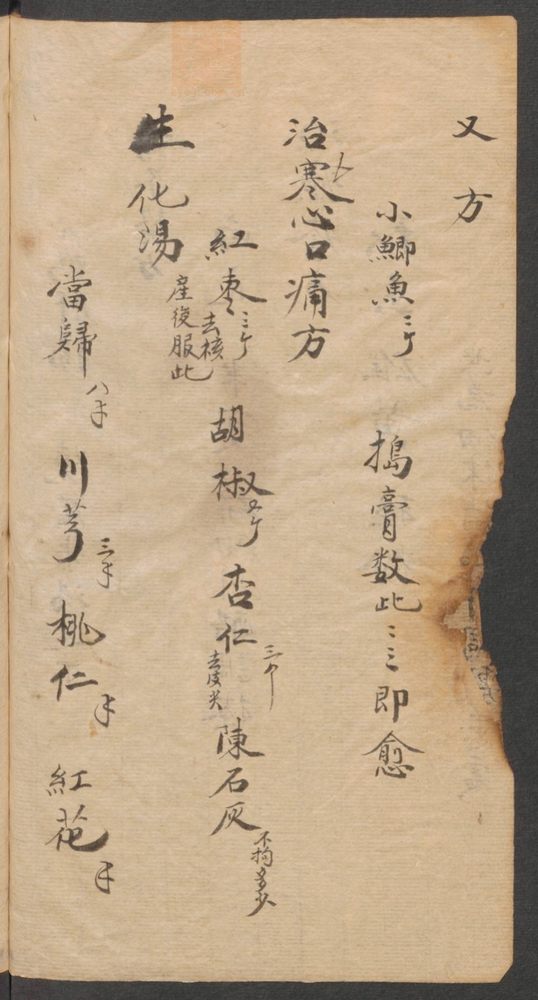 又方
小鯽魚三个 搗膏数此三三即愈
治寒心口痛方
紅棗三个去核 胡椒五个 杏仁三个去皮尖 陳石灰不拘多少
生化湯産後服此
當歸八 川芎三 桃仁 紅花